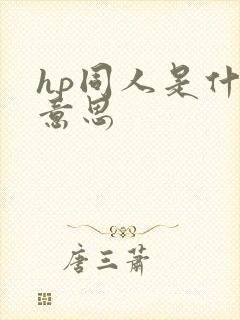 hp同人是什
意思
唐三萧